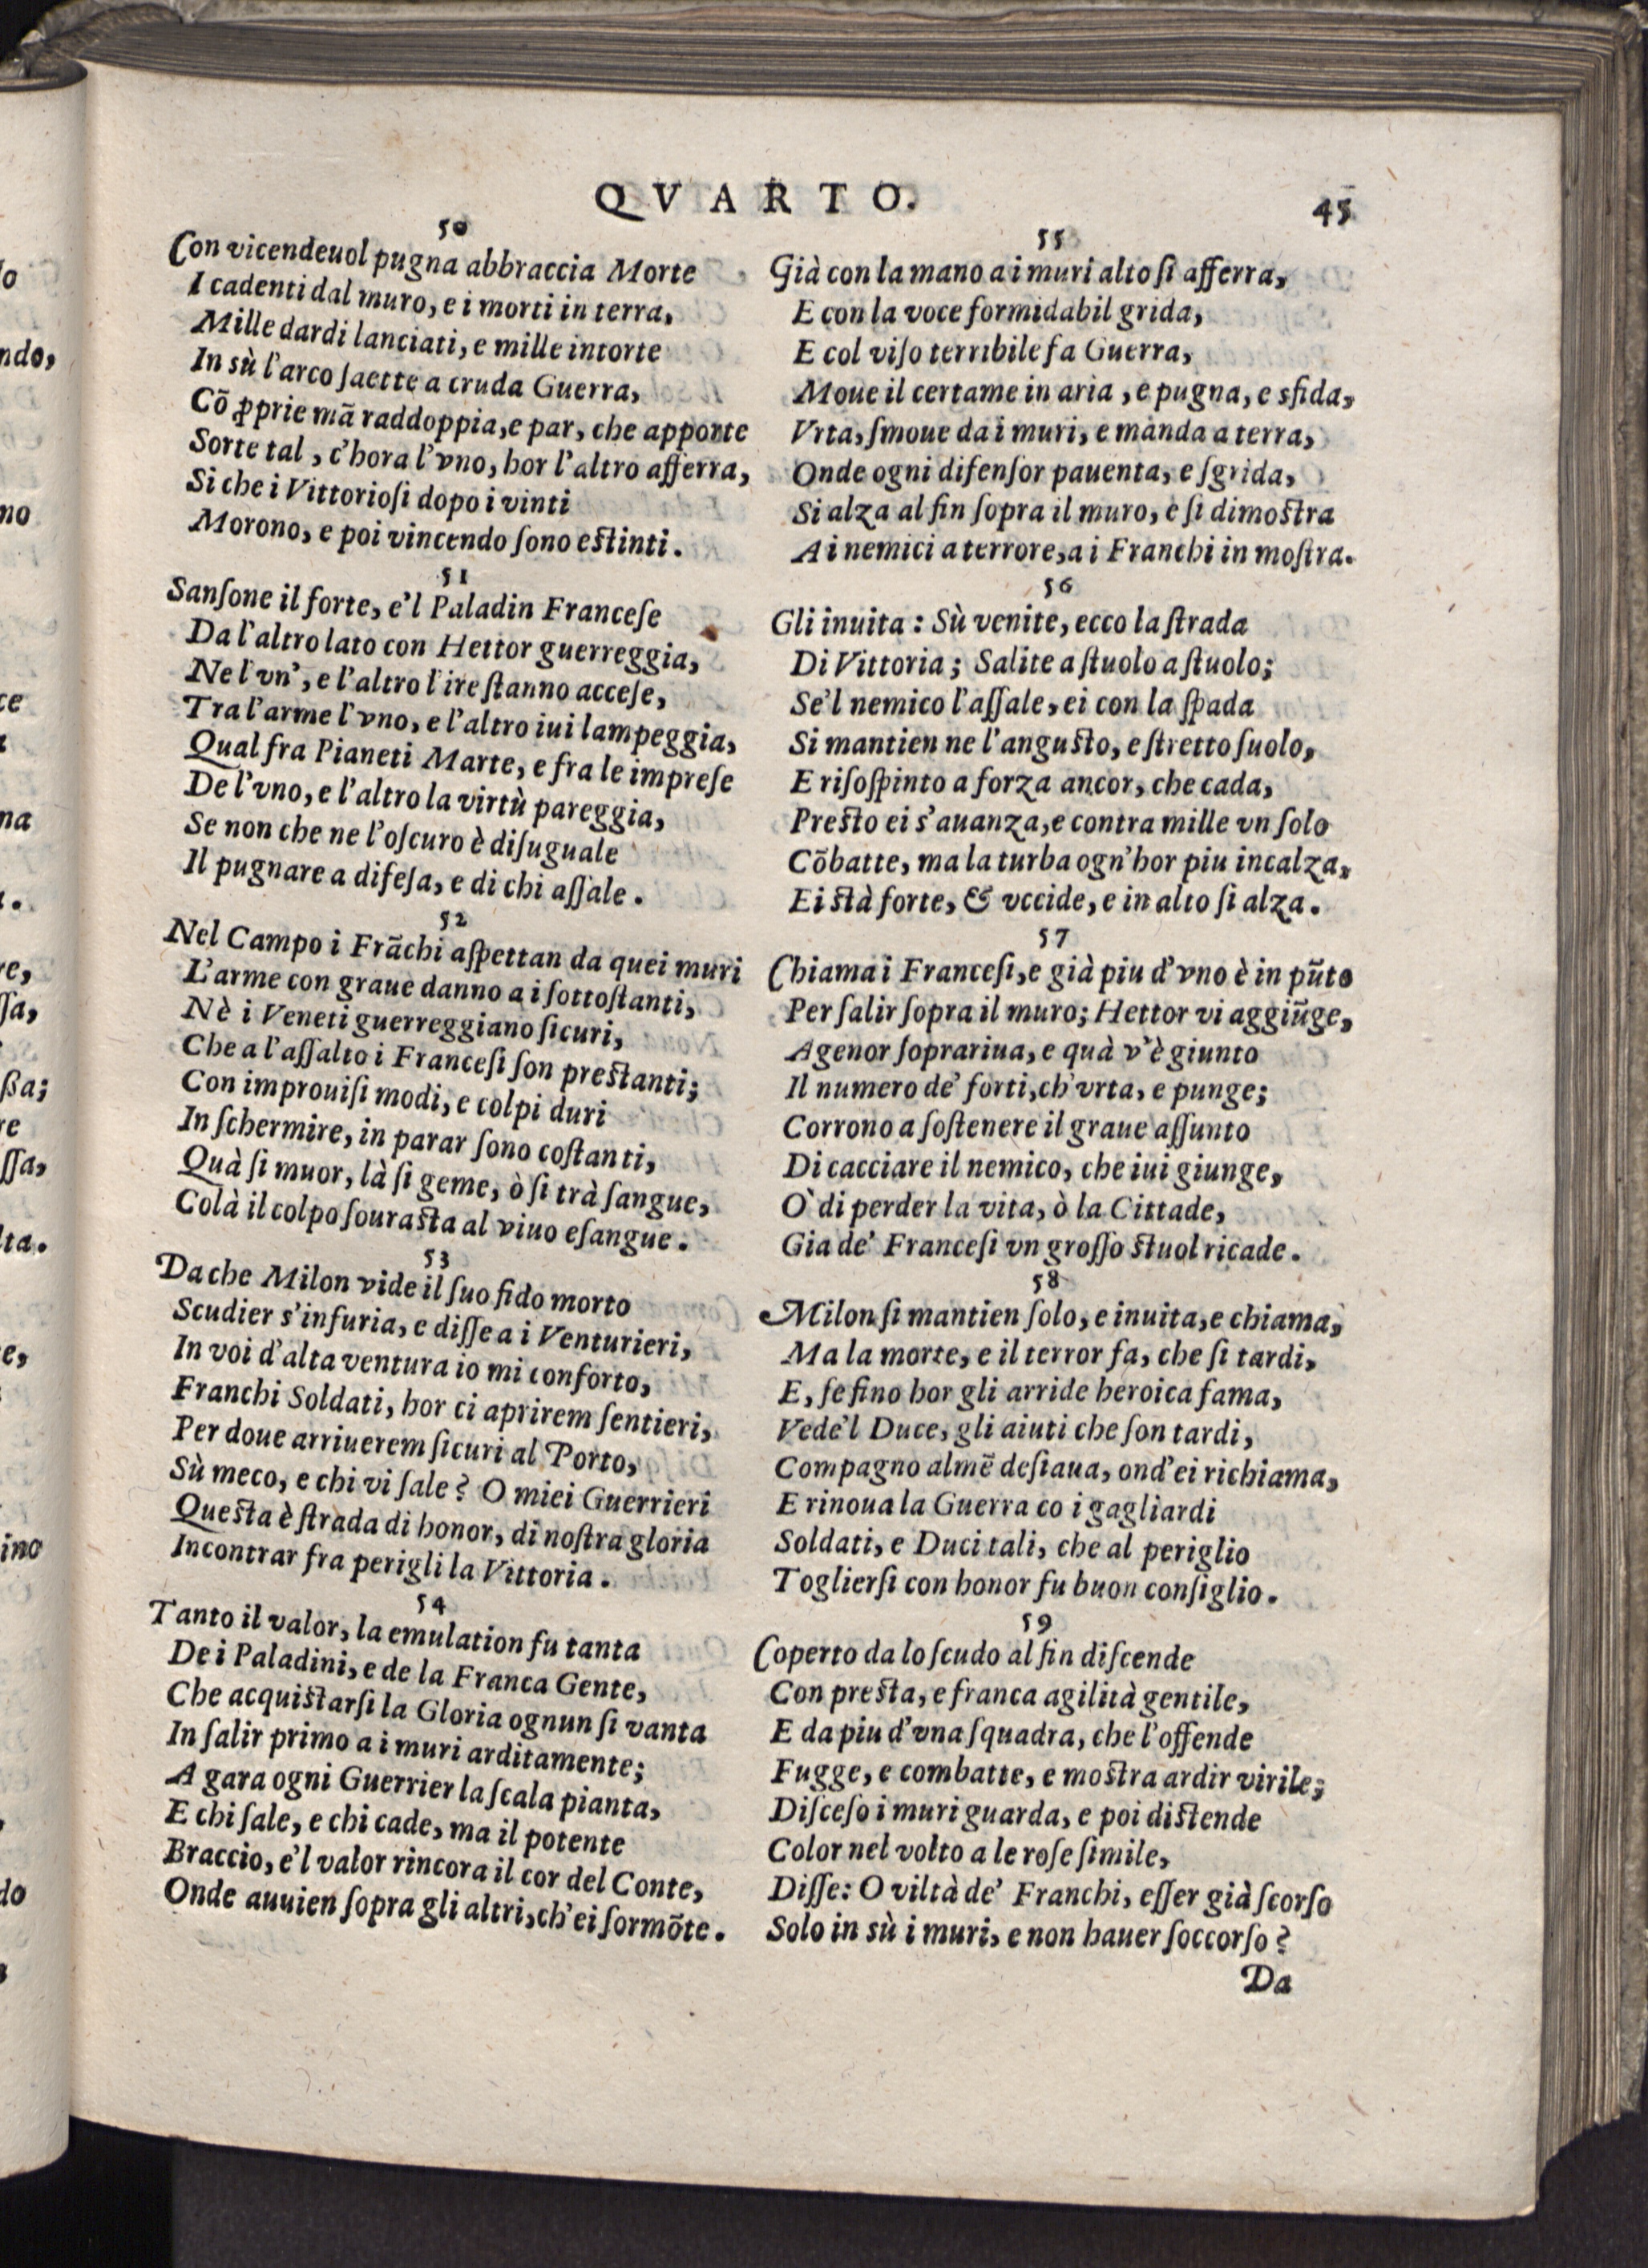 QVARTO.
45
50
Con vicendeuol pugna abbraccia Morte
I cadenti dal muro, e i morti in terra,
Mille dardi lanciati, e mille intorte
In sù l'arco ſaette a cruda Guerra,
Cõ ꝓprie mã raddoppia, e par, che apporte
Sorte tal, c'hora l'vno, hor l'altro afferra,
Si che i Vittorioſi dopo i vinti
Morono, e poi vincendo ſono eſtinti.
51
Sanſone il forte, e'l Paladin Franceſe
Da l'altro lato con Hettor guerreggia,
Ne l'vn', e l'altro l'ire ſtanno acceſe,
Tra l'arme l'vno, e l'altro iui lampeggia,
Qual fra Pianeti Marte, e fra le impreſe
De l'vno, e l'altro la virtù pareggia,
Se non che ne l'oſcuro è diſuguale
Il pugnare a difeſa, e di chi aſſale.
52
Nel Campo i Frãchi aſpettan da quei muri
L'arme con graue danno a i ſottoſtanti,
Nè i Veneti guerreggiano ſicuri,
Che a l'aſſalto i Franceſi ſon preſtanti;
Con improuiſi modi, e colpi duri
In ſchermire, in parar ſono coſtanti,
Quà ſi muor, là ſi geme, ò ſi trà ſangue,
Colà il colpo ſouraſta al viuo eſangue.
53
Da che Milon vide il ſuo fido morto
Scudier s'infuria, e diſſe a i Venturieri,
In voi d'alta ventura io mi conforto,
Franchi Soldati, hor ci aprirem ſentieri,
Per doue arriuerem ſicuri al Porto,
Sù meco, e chi vi ſale? O miei Guerrieri
Queſta è ſtrada di honor, di noſtra gloria
Incontrar fra perigli la Vittoria.
54
Tanto il valor, la emulation fu tanta
De i Paladini, e de la Franca Gente,
Che acquiſtarſi la Gloria ognun ſi vanta
In ſalir primo a i muri arditamente;
A gara ogni Guerrier la ſcala pianta,
E chi ſale, e chi cade, ma il potente
Braccio, e'l valor rincora il cor del Conte,
Onde auuien ſopra gli altri, ch'ei ſormõte.
55
Già con la mano a i muri alto ſi afferra,
E con la voce formidabil grida,
E col viſo terribile fa Guerra,
Moue il certame in aria, e pugna, e sfida,
Vrta, ſmoue da i muri, e manda a terra,
Onde ogni difenſor pauenta, e ſgrida,
Si alza al fin ſopra il muro, e ſi dimoſtra
A i nemici a terrore, a i Franchi in moſtra.
56
Gli inuita: Sù venite, ecco la ſtrada
Di Vittoria; Salite a ſtuolo a ſtuolo;
Se'l nemico l'aſſale, ei con la ſpada
Si mantien ne l'anguſto, e ſtretto ſuolo,
E riſoſpinto a forza ancor, che cada,
Preſto ei s'auanza, e contra mille vn ſolo
Cõbatte, ma la turba ogn'hor piu incalza,
Ei ſtà forte, & vccide, e in alto ſi alza.
57
Chiama i Franceſi, e già piu d'vno è in pũto
Per ſalir ſopra il muro; Hettor vi aggiũge,
Agenor ſoprariua, e quà v'è giunto
Il numero de' forti, ch'vrta, e punge;
Corrono a ſoſtenere il graue aſſunto
Di cacciare il nemico, che iui giunge,
Ò di perder la vita, ò la Cittade,
Gia de' Franceſi vn groſſo ſtuol ricade.
58
Milon ſi mantien ſolo, e inuita, e chiama,
Ma la morte, e il terror fa, che ſi tardi,
E, ſe fino hor gli arride heroica fama,
Vede'l Duce, gli aiuti che ſon tardi,
Compagno almẽ deſiaua, ond'ei richiama,
E rinoua la Guerra co i gagliardi
Soldati, e Duci tali, che al periglio
Toglierſi con honor fu buon conſiglio.
59
Coperto da lo ſcudo al fin diſcende
Con preſta, e franca agilità gentile,
E da piu d'vna ſquadra, che l'offende
Fugge, e combatte, e moſtra ardir virile;
Diſceſo i muri guarda, e poi diſtende
Color nel volto a le roſe ſimile,
Diſſe: O viltà de' Franchi, eſſer già ſcorſo
Solo in sù i muri, e non hauer ſoccorſo?
Da